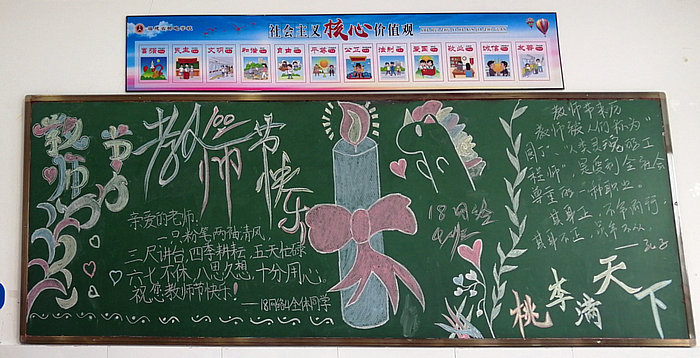 社会主义核心价值观
富强 民主 文明 和谐 自由 平等 公正 法制 爱国 敬业 诚信 友善
教师节
教师节快乐
亲爱的老师:
一只粉笔两袖清风,
三尺讲台,四季耕耘,五天忙碌
六七不休,八思九想,十分用心。
祝您教师节快乐!
——18网络4全体同学
18网络
4班
教师节来历
教师被人们称为"
人类灵魂的工
程师",是受到全社会
尊重的一种职业。
其身正,不令而行,
其身不正,虽令不从
——孔子
桃李满天下